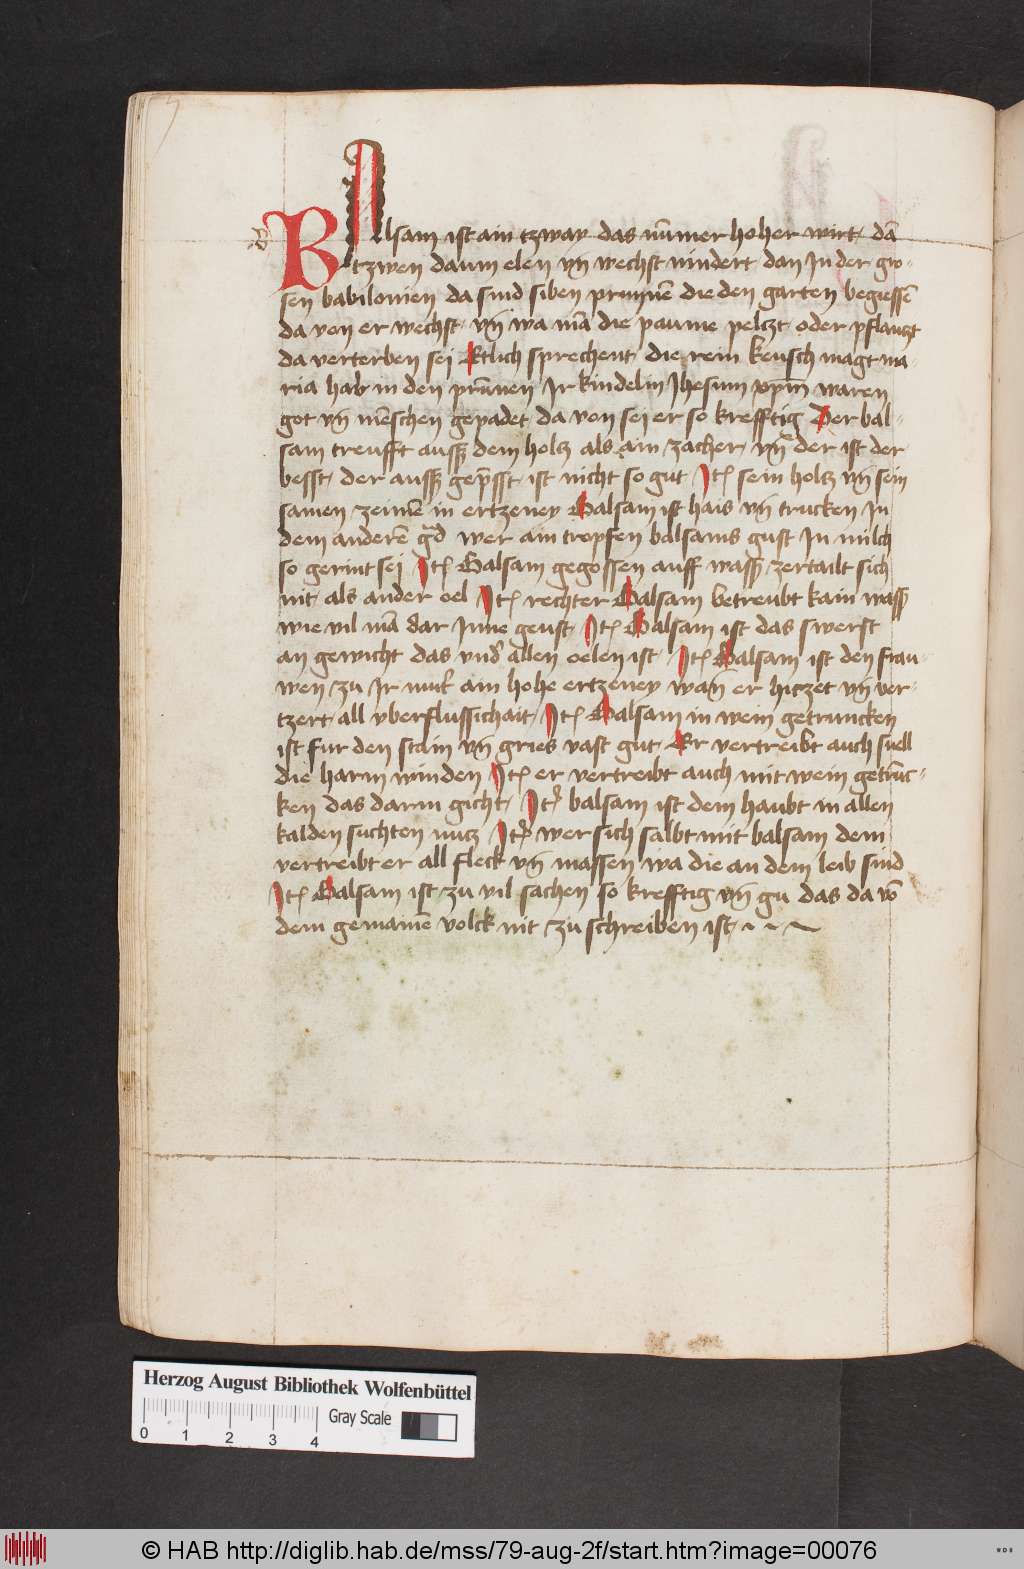 BAlsam ist ain tzway das nūmer hoher wirt · dā
tzwen daum elen vn̄ wechst nindert dan In der gro-
sen babilonien da sind siben prunnē die den garten begiessē
da von er wechst · vn̄ wa mā die paume pelczt oder pflanczt
da verterben sei Etlich sprechent die rein keusch magt ma-
ria hab in den prūnen Ir kindelin Jhesum xp̄m waren
got vn̄ mēschen gepadet da von sei er so krefftig Der bal-
sam treufft aussz dem holtz als ain zacher · vn̄ der ist der
besst · der aussz gep̄sst · ist nicht so gut Itē sein holtz vn̄ sein
samen zeimē in ertzeney Balsam ist hais vn̄ trucken In
dem anderē gd wer ain tropfen balsams gust In milch
so gerint sei Itē Balsam gegossen auff wassz zertailt sich
nit als ander oel Itē rechter Balsam betreubt kain wassz
wie vil mā dar Inne geust · Itē Balsam ist das swerst
an gewicht das vnd' allen oelen ist · Itē Balsam ist den frau-
wen zu Ir mut' ain hohe ertzeney wan̄ er hiczet vn̄ ver-
tzert all vberflussichait · Itē Balsam in wein getruncken
ist fur den stain vn̄ gries vast gut · Er vertreibt auch snell
die harm winden Itē er vertreibt auch mit wein getrūc-
ken das darm gicht · Itē balsam ist dem haubt in allen
kalden suchten nutz Itē wer sich salbt mit balsam dem
vertreibt er all fleck vn̄ massen wa die an dem leib sind
Itē Balsam ist zu vil sachen so krefftig vn̄ gu das da vō
dem gemainē volck nit zu schreiben ist · ~ ~ ~
Herzog August Bibliothek Wolfenbüttel
Gray Scale
0 1 2 3 4
© HAB http://diglib.hab.de/mss/79-aug-2f/start.htm?image=00076